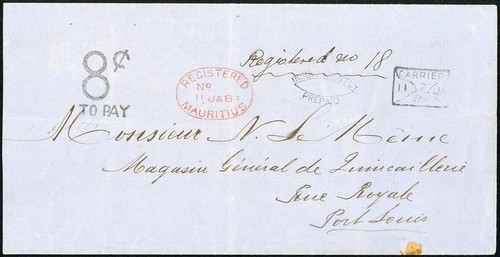 Registered no 18
8¢
TO PAY
REGISTERED
No
11 JA 81
MAURITIUS
PREPAID
CARRIER
Monsieur N. Le Même
Magasin Général de Quincaillerie
Rue Royale
Port Louis